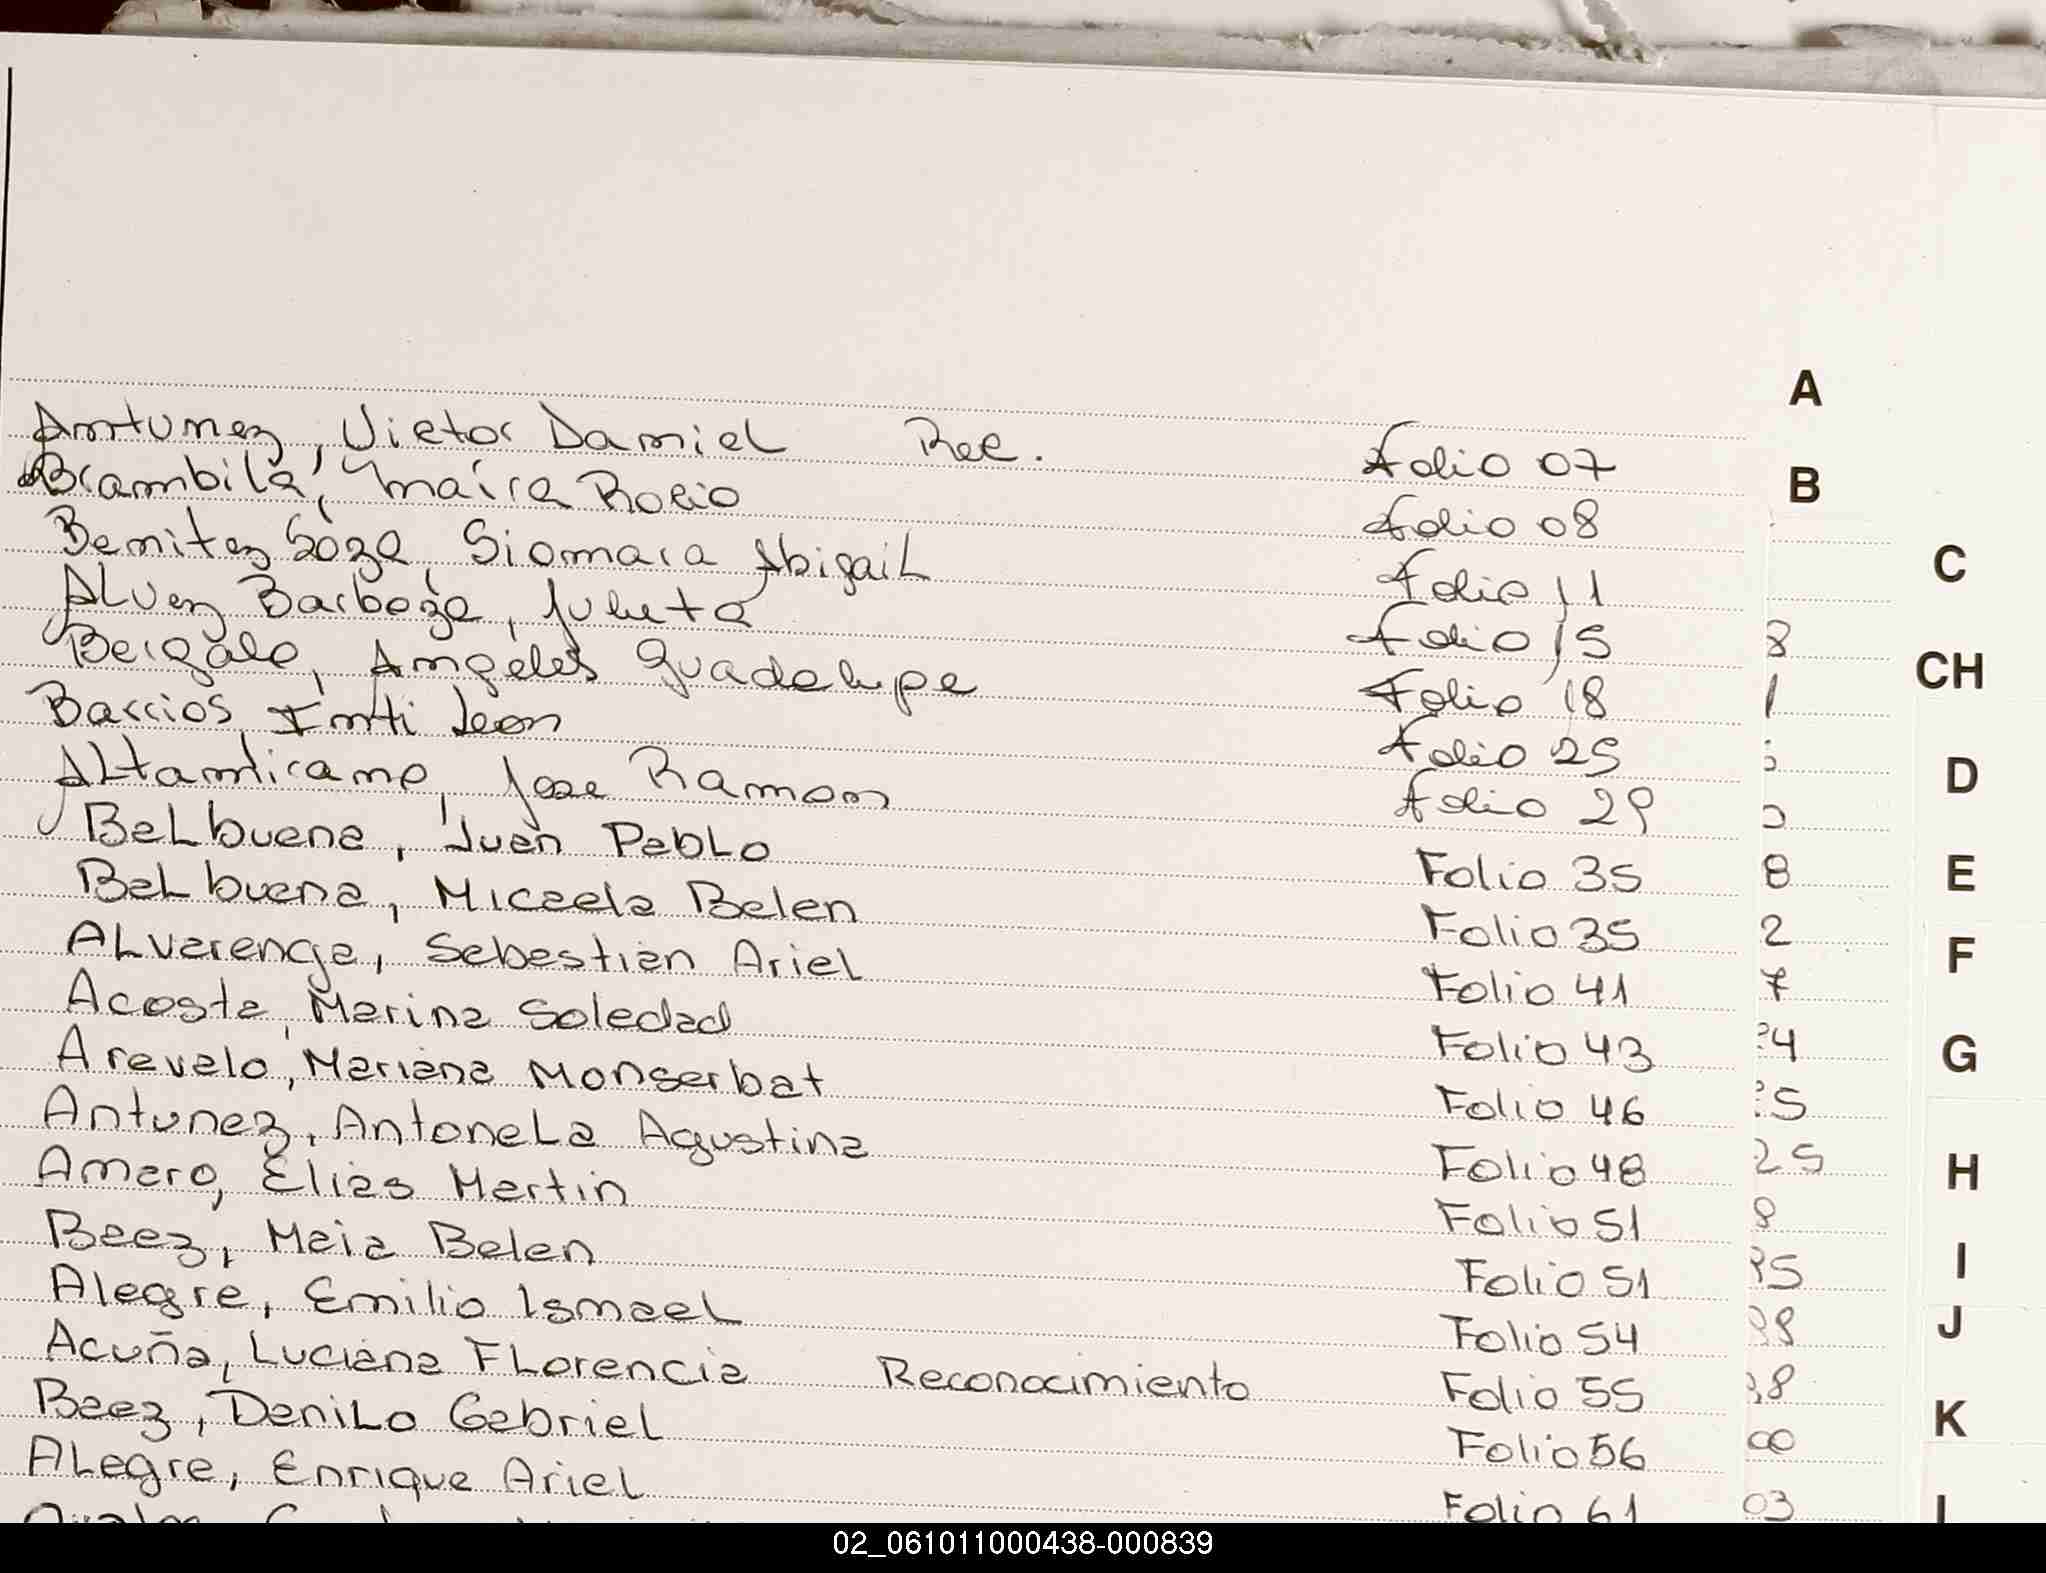 A
Antunez, Victor Daniel Rec. Folio 07
B
Brambila, Maira Rocio Folio 08
Benitez Soza, Siomara Abigail Folio 11
C
Alvez Barboza, Julieta Folio 15
8
Bergalo, Angeles Guadalupe Folio 18
CH
1
Barrios Inti Leon Folio 25
Altamirano, Jose Ramon Folio 29
D
BeLbuena, Juan PabLo Folio 35
8
E
BeLbuena, Micaela Belen Folio 35
2
F
ALvarenga, Sebastian Ariel Folio 41
7
Acosta, Marina Soledad Folio 43
24
G
Arevalo, Mariana Monserbat Folio 46
25
Antunez, AntoneLa Agustina Folio 48
25
H
Amaro, Elias Martin Folio 51
8
Baez, Maia Belen Folio 51
95
I
Alegre, Emilio Ismael Folio 54
98
J
Acuña, Luciana FLorencia Reconocimiento Folio 55
98
Baez, DaniLo Gabriel Folio 56
00
K
ALegre, Enrique Ariel Folio 61
03
L
02_061011000438-000839